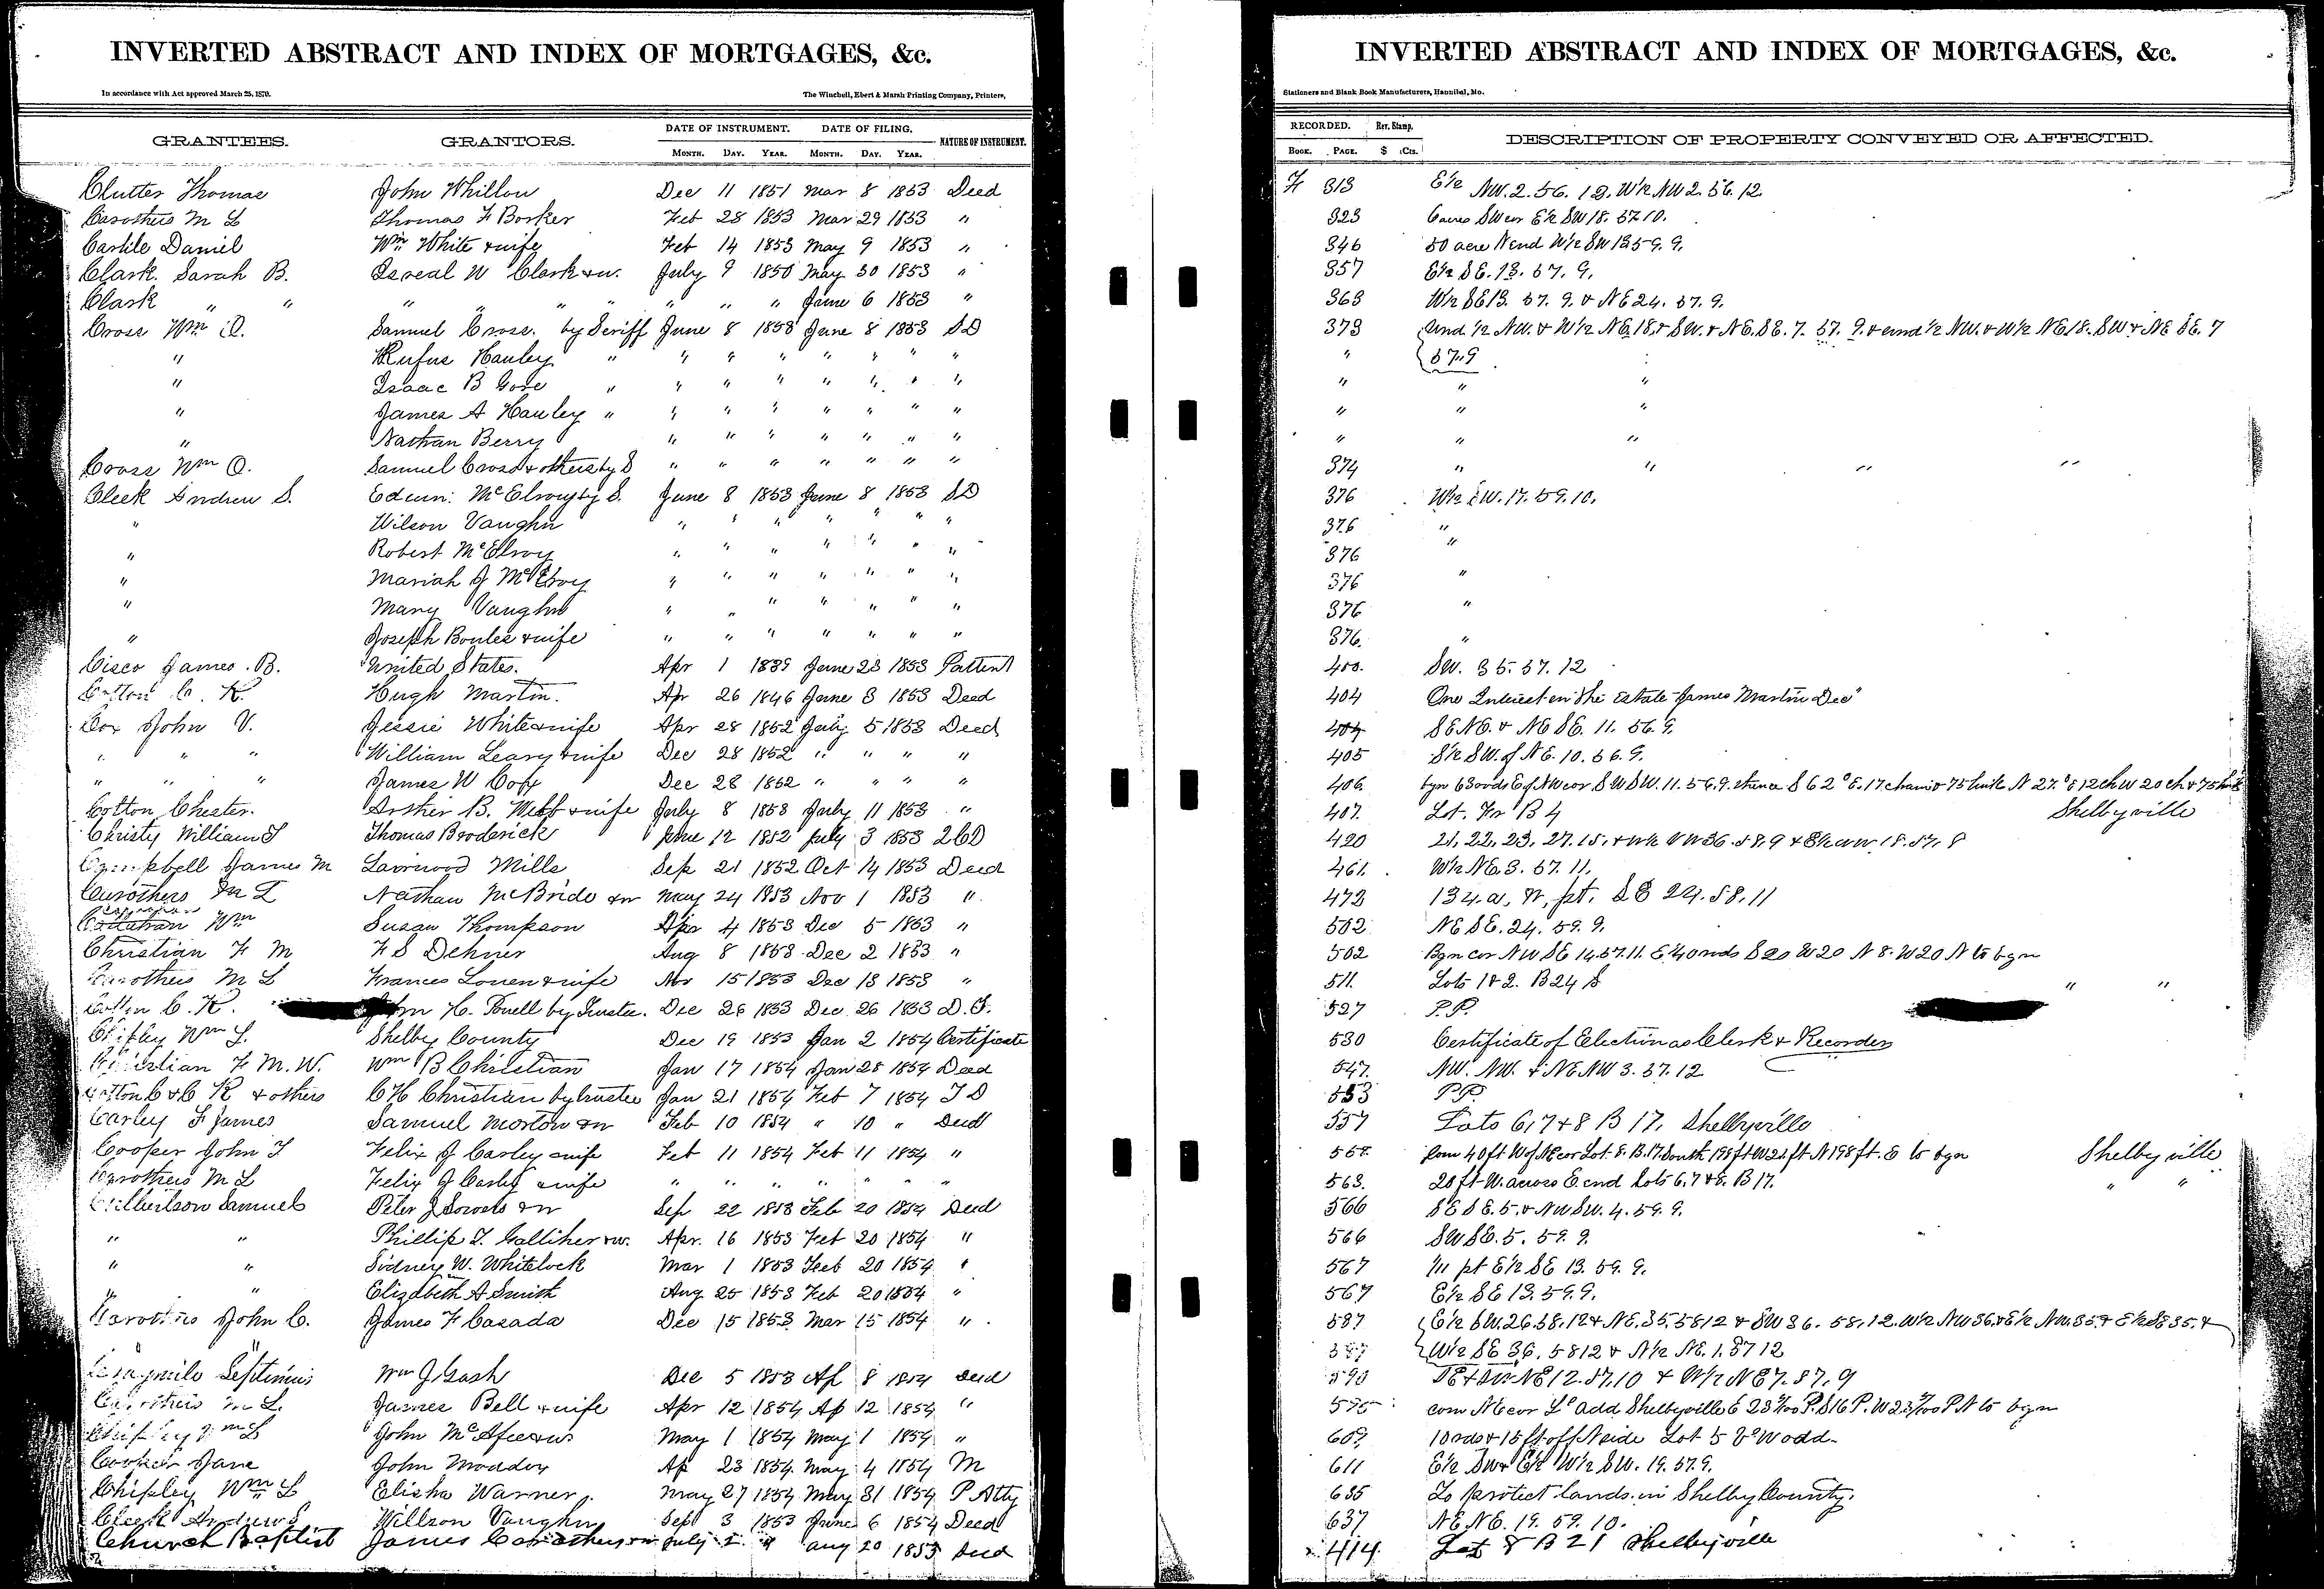 INVERTED ABSTRACT AND INDEX OF MORTGAGES, &c.
In accordance with Act approved March 25, 1870. The Winchell, Ebert & Marsh Printing Company, Printers,
GRANTEES. GRANTORS. DATE OF INSTRUMENT. DATE OF FILING. NATURE OF INSTRUMENT.
MONTH. DAY. YEAR. MONTH. DAY. YEAR.
Clutter Thomas John Whillow Dec 11 1851 Mar 8 1853 Deed
Carothers M L Thomas F Borker Feb 28 1853 Mar 29 1853 "
Carlile Daniel Wm White & wife Feb 14 1853 May 9 1853 "
Clark Sarah B. Isreal W Clark & w. July 9 1850 May 30 1853 "
Clark " " " " " " " " " June 6 1853 "
Cross Wm O. Samuel Cross. by Seriff June 8 1853 June 8 1853 SD
" Rufus Hauley " " " " " " " "
" Isaac B Gove " " " " " " " "
" James A Hauley " " " " " " " "
" Nathan Berry " " " " " " "
Cross Wm O. Samuel Cross & others by S " " " " " " "
Cleek Andrew S. Edwin McElroy by S. June 8 1853 June 8 1853 SD
" Wilson Vaughn " " " " " " "
" Robert McElroy " " " " " " "
" Mariah J McElroy " " " " " " "
" Mary Vaughn " " " " " " "
" Joseph Boules & wife " " " " " " "
Cisco James B. United States. Apr 1 1839 June 23 1853 Pattent
Cotton C. K. Hugh Martin. Apr 26 1846 June 3 1853 Deed
Cox John V. Jessie White & wife Apr 28 1852 July 5 1853 Deed
" " " William Leary & wife Dec 28 1852 " " " "
" " " James W Cox Dec 28 1852 " " " "
Cotton Chester. Arther B. Webb & wife July 8 1853 July 11 1853 "
Christy William S Thomas Broderick June 12 1852 July 3 1853
Campbell James M Mills Sep 21 1852 Oct 14 1853 Deed
Carothers M L Nathan McBride & w May 24 1853 Nov 1 1853 "
Callahan Wm Susan Thompson Apr 4 1853 Dec 5 1853 "
Christian F M F S Dehner Aug 8 1853 Dec 2 1853 "
Carothers M L Frances Louen & wife Nov 15 1853 Dec 13 1853 "
Cotton C. K. John H. Powell by Trustee. Dec 26 1853 Dec 26 1853 D. T.
Chipley Wm L. Shelby County Dec 19 1853 Jan 2 1854 Certificate
Christian F. M. W. Wm B Christian Jan 17 1854 Jan 28 1854 Deed
Cotton C & C K & others C H Christian by trustee Jan 21 1854 Feb 7 1854 T D
Carley F James Samuel Morton & w Feb 10 1854 " 10 " Deed
Cooper John T Felix J Carley & wife Feb 11 1854 Feb 11 1854 "
Carothers M L Felix J Carley & wife " " " " " " "
Culbertson Samuel Peter & w Sep 22 1853 Feb 20 1854 Deed
" " Phillip T. Galliher & w. Apr. 16 1853 Feb 20 1854 "
" " Sidney W. Whitelock Mar 1 1853 Feb 20 1854 "
" " Elizabeth A Smith Aug 25 1853 Feb 20 1854 "
Carothers John C. James F Casada Dec 15 1853 Mar 15 1854 "
Septimus Wm J Gash Dec 5 1853 Ap 8 1854 Deed
Carothers M L. James Bell & wife Apr 12 1854 Ap 12 1854 "
Chipley Wm L John McAfee & w May 1 1854 May 1 1854 "
Cooper Jane John Maddox Ap 23 1854 May 4 1854 M
Chipley Wm L Elisha Warner May 27 1854 May 31 1854 P Atty
Cleek Andrew S Willson Vaughn Sep 3 1853 June 6 1854 Deed
Church Baptist James Carothers & w July 2 " Aug 20 1853 Deed
INVERTED ABSTRACT AND INDEX OF MORTGAGES, &c.
Stationers and Blank Book Manufacturers, Hannibal, Mo.
RECORDED. Rev. Stamp. DESCRIPTION OF PROPERTY CONVEYED OR AFFECTED.
BOOK. PAGE. $ Cts.
F 313 E½ NW. 2. 56. 12. W½ NW 2. 56. 12.
323 6 acres SW cor E½ SW 18. 57 10.
346 50 acre N end W½ SW 13 59. 9.
357 E½ SE. 13. 57. 9.
363 W½ SE 13. 57. 9. & NE 24. 57. 9.
373 und ½ NW. & W½ NE. 18. & SW. & NE. SE. 7. 57. 9. & und ½ NW. & W½ NE 18. SW & NE SE. 7
" 57.9
" " "
" " "
" " "
374 " " " "
376 W½ SW. 17. 59. 10.
376 "
376 "
376 "
376 "
376. "
400. SW. 35. 57. 12
404 One Interest in the Estate James Martin Decd
404 SE NE. & NE SE. 11. 56. 9.
405 S½ SW. of NE. 10. 56. 9.
406. bgn 63 rods E of NW cor SW SW. 11. 56. 9. thence S 62° E. 17 chains 75 links N 27° E 12 ch W 20 ch & 75 links
407. Lot. Fr B 4 Shelbyville
420 21, 22, 23, 27. 15.
461. W½ NE. 3. 57. 11.
473 134. a, N, pt. SE 24. 58. 11
502 NE SE. 24. 59. 9.
502 Bgn cor NW SE 14. 57. 11. E 40 rods S 20 W 20 N 8. W 20 N to bgn
511. Lots 1 & 2. B 24 S " "
527 P. P.
530 Certificate of Election as Clerk & Recorder
547. NW. NW. & NE NW 3. 57. 12
553 P P.
557 Lots 6, 7 & 8 B 17, Shelbyville
558. from 40 ft W of NE cor Lot. 8. B. 17 South 198 ft W 22 ft N 198 ft. E to bgn Shelbyville
563. 20 ft W. across E. end Lots 6, 7 & 8. B 17. " "
566 SE SE. 5. & NW SW. 4. 59. 9.
566 SW SE. 5. 59. 9.
567 1/11 pt E½ SE 13. 59. 9.
567 E½ SE 13. 59. 9.
587 E½ SW. 26. 58. 12 & NE. 35. 58 12 & SW 36. 58. 12. W½ NW 36. & E½ NW. 35. & E½ SE 35. &
587 W½ SE 36. 58 12 & N½ NE. 1. 57 12
590 NE 12. 57, 10 & W½ NE 7. 57. 9
595 com NE cor add Shelbyville E 23 P. S 16 P. W 23 P N to bgn
607. 10 rods & 15 ft off N side Lot 5 W add
611 E½ SW & E½ W½ SW. 19. 57. 9.
635 To protect lands in Shelby County.
637 NE NE. 19. 59. 10.
414 Lot 8 B 21 Shelbyville